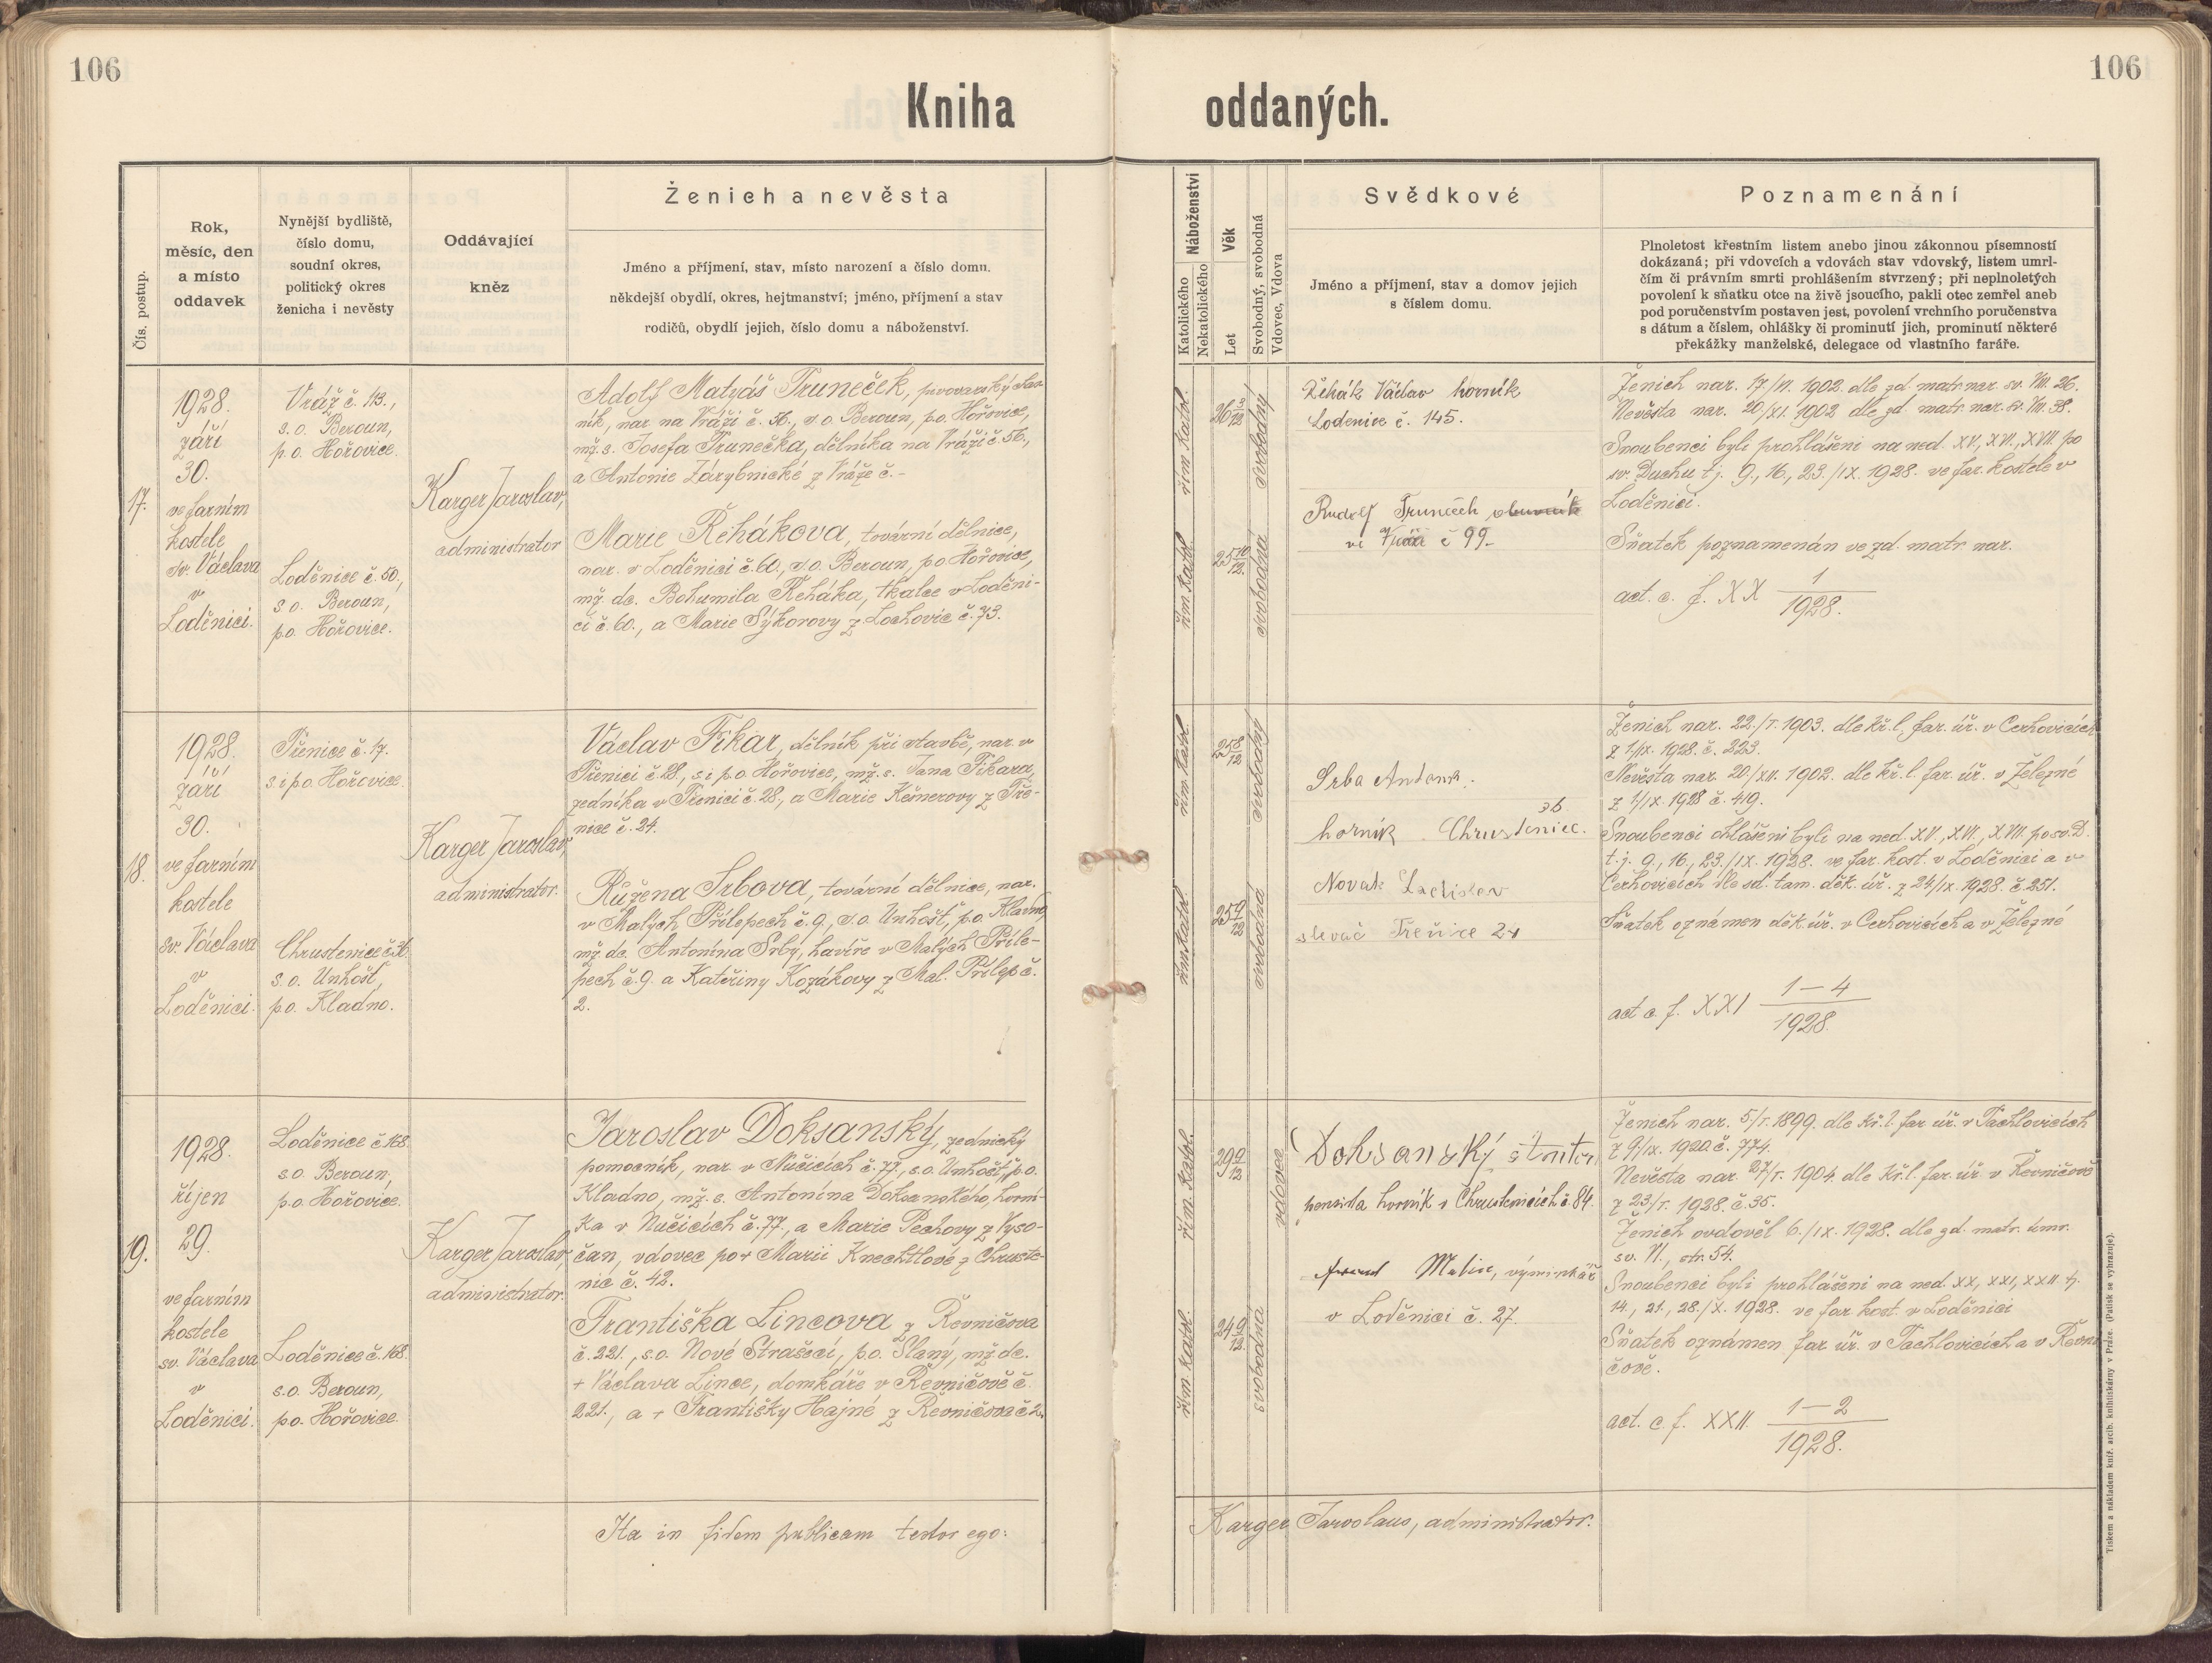 106
106
Kniha oddaných.
Čís. postup.
Rok,
měsíc, den
a místo
oddavek
Nynější bydliště,
číslo domu,
soudní okres,
politický okres
ženicha i nevěsty
Oddávající
kněz
Ženich a nevěsta
Jméno a příjmení, stav, místo narození a číslo domu.
někdejší obydlí, okres, hejtmanství; jméno, příjmení a stav
rodičů, obydlí jejich, číslo domu a náboženství.
Náboženství
Katolického
Nekatolického
Věk
Let
Svobodný, svobodná
Vdovec, Vdova
Svědkové
Jméno a příjmení, stav a domov jejich
s číslem domu.
Poznamenání
Plnoletost křestním listem anebo jinou zákonnou písemností
dokázaná; při vdovcích a vdovách stav vdovský, listem umrl-
čím či právním smrti prohlášením stvrzený; při neplnoletých
povolení k sňatku otce na živě jsoucího, pakli otec zemřel aneb
pod poručenstvím postaven jest, povolení vrchního poručenstva
s dátum a číslem, ohlášky či prominutí jich, prominutí některé
překážky manželské, delegace od vlastního faráře.
17.
1928.
září
30.
ve farním
kostele
sv. Václava
v
Loděnici.
Vráž č. 113.,
s.o. Beroun,
p.o. Hořovice.
Loděnice č. 50.,
s.o. Beroun,
p.o. Hořovice.
Karger Jaroslav,
administrator
Adolf Matyáš Truneček, pivovarský
ník, nar. na Vráži č. 56., s.o. Beroun, p.o. Hořovice,
mž. s. Josefa Trunečka, dělníka na Vráži č. 56.,
a Antonie Zárybnické z Vráže č.-
Marie Řeháková, tovární dělnice,
nar. v Loděnici č. 60., s.o. Beroun, p.o. Hořovice,
mž. dc. Bohumila Řeháka, tkalce v Loděni-
ci č. 60., a Marie Sýkorovy z Lochovic č. 73.
řím. katol.
řím. katol.
26 3/12
25 10/12
svobodný
svobodná
Řehák Václav horník
Lodenice č. 145.
Rudolf
č 99-
Ženich nar. 17/VI. 1902. dle zd. matr. nar. sv. VII. 26.
Nevěsta nar. 20/XI. 1902 dle zd. matr. nar. sv. VII. 38.
Snoubenci byli prohlášeni na ned. XV., XVI., XVII. po
sv. Duchu t.j. 9., 16., 23./IX. 1928. ve far. kostele v
Loděnici.
Sňatek poznamenán ve zd. matr. nar.
act. c. f. XX 1/1928.
18.
1928.
září
30.
ve farním
kostele
sv. Václava
v
Loděnici.
Třenice č. 17.
s. i p.o. Hořovice.
Chrustenice č. 36.
s.o. Unhošť,
p.o. Kladno.
Karger Jaroslav,
administrator.
Václav Fikar, dělník při stavbě, nar. v
Třenici č. 28., s. i p.o. Hořovice, mž. s. Jana Fikara,
zedníka v Třenici č. 28., a Marie Kešnerovy z Tře-
nice č. 24.
Růžena Srbova, tovární dělnice, nar.
v Malých Přílepech č. 9., s.o. Unhošť, p.o. Kladno,
mž. dc. Antonína Srby, havíře v Malých Příle-
pech č. 9. a Kateřiny Kozákovy z Mal. Přílep č.
2.
řím. katol.
řím. katol.
25 8/12
25 9/12
svobodný
svobodná
Srba Antonín.
36.
horník Chrustenice.
Novák Ladislav
slevač Třenice 24
Ženich nar. 22./I. 1903. dle kř. l. far. úř. v Cerhovicích
z 1/IX. 1928. č. 223.
Nevěsta nar. 20/XII. 1902. dle kř. l. far. úř. v Železné
z 1/IX. 1928 č. 419.
Snoubenci ohlášeni byli na ned. XV., XVI., XVII. po sv. D.
t.j. 9., 16., 23./IX. 1928. ve far. kost. v Loděnici a v
Cerhovicích dle sd. tam. děk. úř. z 24/IX. 1928. č. 251.
Sňatek oznámen děk. úř. v Cerhovicích a v Železné
act c. f. XXI 1—4/1928.
19.
1928.
říjen
29.
ve farním
kostele
sv. Václava
v
Loděnici.
Loděnice č. 168.
s.o. Beroun,
p.o. Hořovice.
Loděnice č. 168.
s.o. Beroun,
p.o. Hořovice.
Karger Jaroslav,
administrator.
Jaroslav Doksanský, zednický
pomocník, nar. v Nučicích č. 77., s.o. Unhošť, p.o.
Kladno, mž. s. Antonína Doksanského, horní-
ka v Nučicích č. 77., a Marie Pechovy z Vyso-
čan, vdovec po + Marii Knechtlové z Chruste-
nic č. 42.
Františka Lincova z Řevničova
č. 221., s.o. Nové Strašecí, p.o. Slaný, mž. dc.
+ Václava Lince, domkáře v Řevničově č.
221., a + Františky Hajné z Řevničova č. 2.
řím. katol.
řím. katol.
29 9/12
24 9/12
vdovec
svobodná
Doksanský
pensista horník v Chrustenicích č. 84.
výminkář
v Loděnici č. 27.
Ženich nar. 5/I. 1899. dle kř. l. far úř. v Tachlovicích
z 9/IX. 1920. č. 774.
Nevěsta nar. 27/I. 1904. dle kř. l. far. úř. v Řevničově
z 23/I. 1928. č. 35.
Ženich ovdověl 6./IX. 1928. dle zd. matr. úmr.
sv. VI., str. 54.
Snoubenci byli prohlášeni na ned. XX, XXI, XXII tj.
14., 21., 28./X. 1928. ve far. kost. v Loděnici
Sňatek oznámen far. úř. v Tachlovicích a v Řevni-
čově.
act. c. f. XXII. 1—2/1928.
Ita in fidem publicam testor ego:
Karger Jaroslaus, administrator.
Tiskem a nákladem kníž. arcib. knihtiskárny v Praze. (Patisk se vyhrazuje).